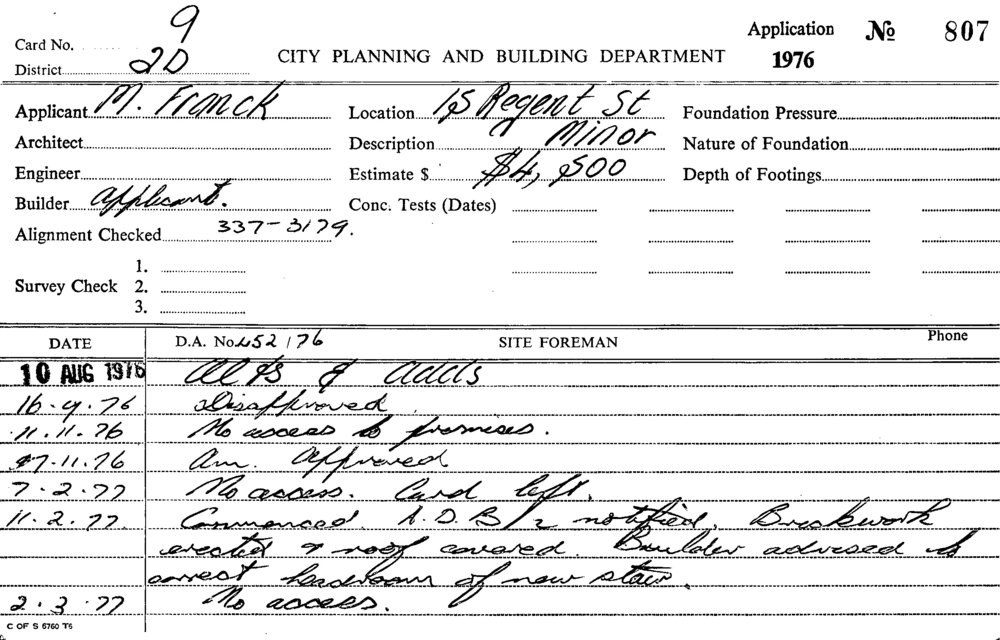 Card No. 9
District 2D
CITY PLANNING AND BUILDING DEPARTMENT
Application No 807
1976
Applicant M. Franck
Location 15 Regent St
Foundation Pressure
Architect
Description Minor
Nature of Foundation
Engineer
Estimate $ $4,500
Depth of Footings
Builder Applicant.
Conc. Tests (Dates)
Alignment Checked 337-3179.
Survey Check 1.
2.
3.
DATE D.A. No. 452/76 SITE FOREMAN Phone
10 AUG 1976 Alts & Adds
16.9.76 Disapproved
11.11.76 No access to premises.
17.11.76 Am. Approved
7.2.77 No access. Card left.
11.2.77. Commenced. A.D.B/2 notified. Brickwork
erected & roof covered. Builder advised to
correct headroom of new stair.
2.3.77 No access.
C OF S 6760 T6